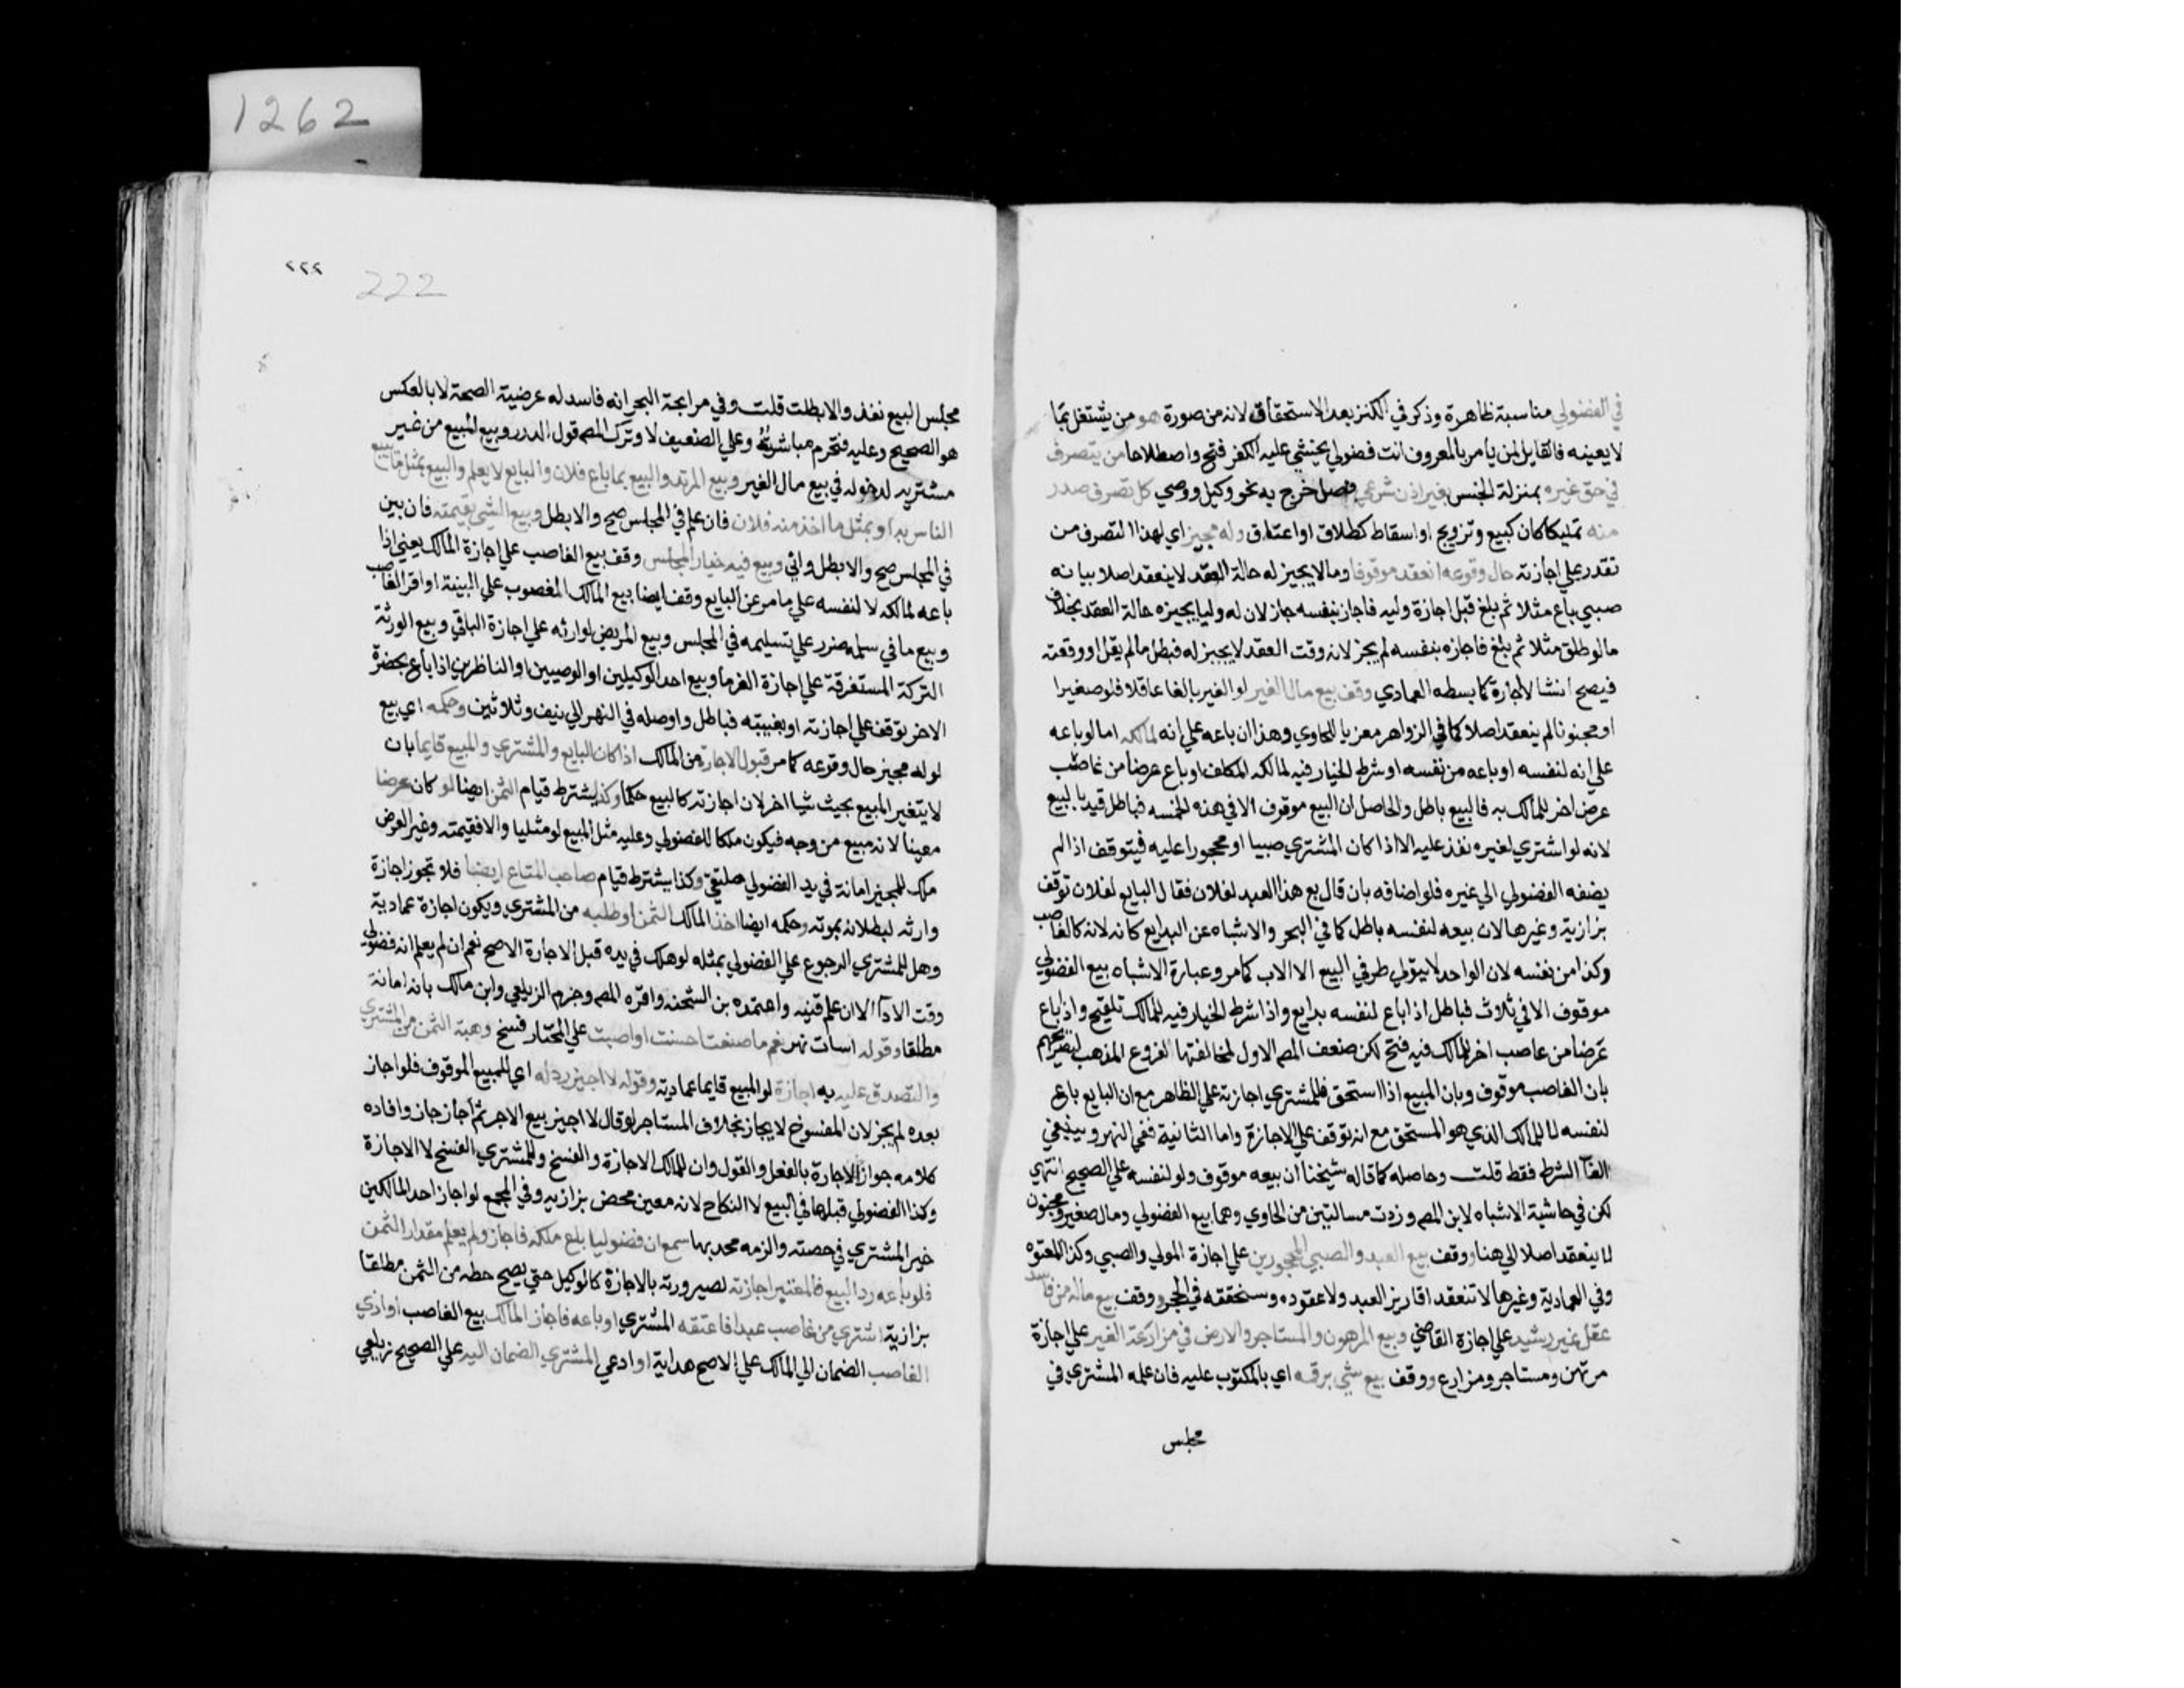 1262
في الفضولي مناسبة ظاهرة وذكر في الكنز بعد الاستحقاق لانه من صورة هو من يشتغل بما
لا يعينه فالقايل لمن يأمر بالمعروف انت فضولي يخشي عليه الكفر فتح واصطلاحا من يتصرف
في حق غيره بمنزلة الجنس بغير اذن شرعي فصل خرج به نحو وكيل ووصي كل تصرف صدر
منه تمليكا كان كبيع وتزويج او اسقاط كطلاق او اعتاق وله مجيز اي لهذا التصرف من
يقدر علي اجازته حال وقوعه انعقد موقوفا وما لا يجيز له حالة العقد لا ينعقد اصلا بيانه
صبي باع مثلا ثم بلغ قبل اجازة وليه فاجاز بنفسه جاز لان له وليا يجيزه حالة العقد بخلاف
ما لو طلق مثلا ثم بلغ فاجازه بنفسه لم يجز لانه وقت العقد لا يجيز له فبطل ما لم يقل اوقعته
فيصح انشا لا اجازة كما بسطه العمادي وقف بيع مال الغير لو الغير بالغا عاقلا فلو صغيرا
او مجنونا لم ينعقد اصلا كما في الزواهر معزيا للحاوي وهذا ان باعه علي انه لمالكه اما لو باعه
علي انه لنفسه او باعه من نفسه او شرط الخيار فيه لمالكه المكلف او باع عرضا من غاصب
عرض اخر للمالك به فالبيع باطل والحاصل ان البيع موقوف الا في هذه الخمسة فباطل قيد بالبيع
لانه لو اشتري لغيره نفذ عليه الا اذا كان المشتري صبيا او محجورا عليه فيتوقف اذا لم
يضفه الفضولي الي غيره فلو اضافه بان قال بع هذا العبد لفلان فقال البايع لفلان توقف
بزازية وغيرها لان بيعه لنفسه باطل كما في البحر والاشباه عن البدايع كانه لانه كالغاصب
وكذا من نفسه لان الواحد لا يتولي طرفي البيع الا الاب كما مر وعبارة الاشباه بيع الفضولي
موقوف الا في ثلاث فباطل اذا باع لنفسه بدايع واذا شرط الخيار فيه للمالك تلقيح واذا باع
عرضا من غاصب اخر للمالك فيه فتح لكن ضعف المص الاول لمخالفتها لفروع المذهب لتصريحهم
بان الغاصب موقوف وبان المبيع اذا استحق فللمشتري اجازته علي الظاهر مع ان البايع باع
لنفسه لا للمالك الذي هو المستحق مع انه توقف علي الاجازة واما الثانية ففي النهر وينبغي
الغآ الشرط فقط قلت وحاصله كما قاله شيخنا ان بيعه موقوف ولو لنفسه علي الصحيح انتهي
لكن في حاشية الاشباه لابن المص وزدت مسالتين من الحاوي وهما بيع الفضولي ومال صغير ومجنون
لا ينعقد اصلا الي هنا ووقف بيع العبد والصبي المحجورين علي اجازة المولي والصبي وكذا المعتوه
وفي العمادية وغيرها لا تنعقد اقارير العبد ولا عقوده وسنحققه في الحجر ووقف بيع ماله من فاسد
عقل غير رشيد علي اجازة القاضي وبيع المرهون والمستاجر والارض في مزارعة الغير علي اجازة
مرتهن ومستاجر ومزارع ووقف بيع شي برقمه اي بالمكتوب عليه فان علمه المشتري في
مجلس
٢٢٢
222
مجلس البيع نفذ والا بطلت قلت وفي مرابحة البحر انه فاسد له عرضية الصحة لا بالعكس
هو الصحيح وعليه فتحرم مباشرته وعلي الضعيف لا وترك المص قول الدرر وبيع المبيع من غير
مشتريه لدخوله في بيع مال الغير وبيع المرتد والبيع بما باع فلان والبايع لا يعلم والبيع بمثل ما يبيع
الناس به او بمثل ما اخذ منه فلان فان علم في المجلس صح والا بطل وبيع الشي بقيمته فان بين
في المجلس صح والا بطل واتي وبيع فيه خيار المجلس وقف بيع الغاصب علي اجازة المالك يعني اذا
باعه لمالكه لا لنفسه علي ما مر عن البايع وقف ايضا بيع المالك المغصوب علي البينة او اقر الغاصب
وبيع ما في سلمه ضرر علي تسليمه في المجلس وبيع المريض لوارثه علي اجازة الباقي وبيع الورثة
التركة المستغرقة علي اجازة الغرما وبيع احد الوكيلين او الوصيين او الناظرين اذا باع بحضرة
الاخر توقف علي اجازته او بغيبته فباطل واوصله في النهر الي نيف وثلاثين وحكمه اي بيع
لو له مجيز حال وقوعه كما مر قبول الاجازة من المالك اذا كان البايع والمشتري والمبيع قايما بان
لا يتغير المبيع بحيث شيا اخر لان اجازته كالبيع حكما وكذا يشترط قيام الثمن ايضا لو كان عرضا
معينا لانه مبيع من وجه فيكون ملكا للفضولي وعليه مثل المبيع لو مثليا والا فقيمته وغير العرض
ملك للمجيز امانة في يد الفضولي ملتقي وكذا يشترط قيام صاحب المتاع ايضا فلا تجوز اجازة
وارثه لبطلانه بموته وحكمه ايضا اخذ المالك الثمن او طلبه من المشتري ويكون اجازة عمادية
وهل للمشتري الرجوع علي الفضولي بمثله لو هلك في يده قبل الاجازة الاصح نعم ان لم يعلم انه فضولي
وقت الادآ لا ان علم قنيه واعتمده بن الشحنه واقره المص وجزم الزيلعي وابن مالك بانه امانة
مطلقا وقوله اسات نهر نعم ما صنعت احسنت او اصبت علي المختار فسخ وهبة الثمن من المشتري
والتصدق عليه به اجازة لو المبيع قايما عمادية وقوله لا اجيز رد له اي للمبيع الموقوف فلو اجاز
بعده لم يجز لان المفسوخ لا يجاز بخلاف المستاجر لو قال لا اجيز بيع الاجر ثم اجاز جاز وافاده
كلامه جواز الاجازة بالفعل والقول وان للمالك الاجازة والفسخ وللمشتري الفسخ لا الاجازة
وكذا الفضولي قبلها في البيع لا النكاح لانه معين محض بزازيه وفي المجمع لو اجاز احد المالكين
خير المشتري في حصته والزمه محمد بها سمع ان فضوليا باع ملكه فاجاز ولم يعلم مقدار الثمن
فلو باعه رد البيع فالمعتبر اجازته لصيرورته بالاجازة كالوكيل حتي يصح حطه من الثمن مطلقا
بزازية اشتري من غاصب عبدا فاعتقه المشتري او باعه فاجاز المالك بيع الغاصب او ادي
الغاصب الضمان الي المالك علي الاصح هداية او ادعي المشتري الضمان اليه علي الصحيح زيلعي